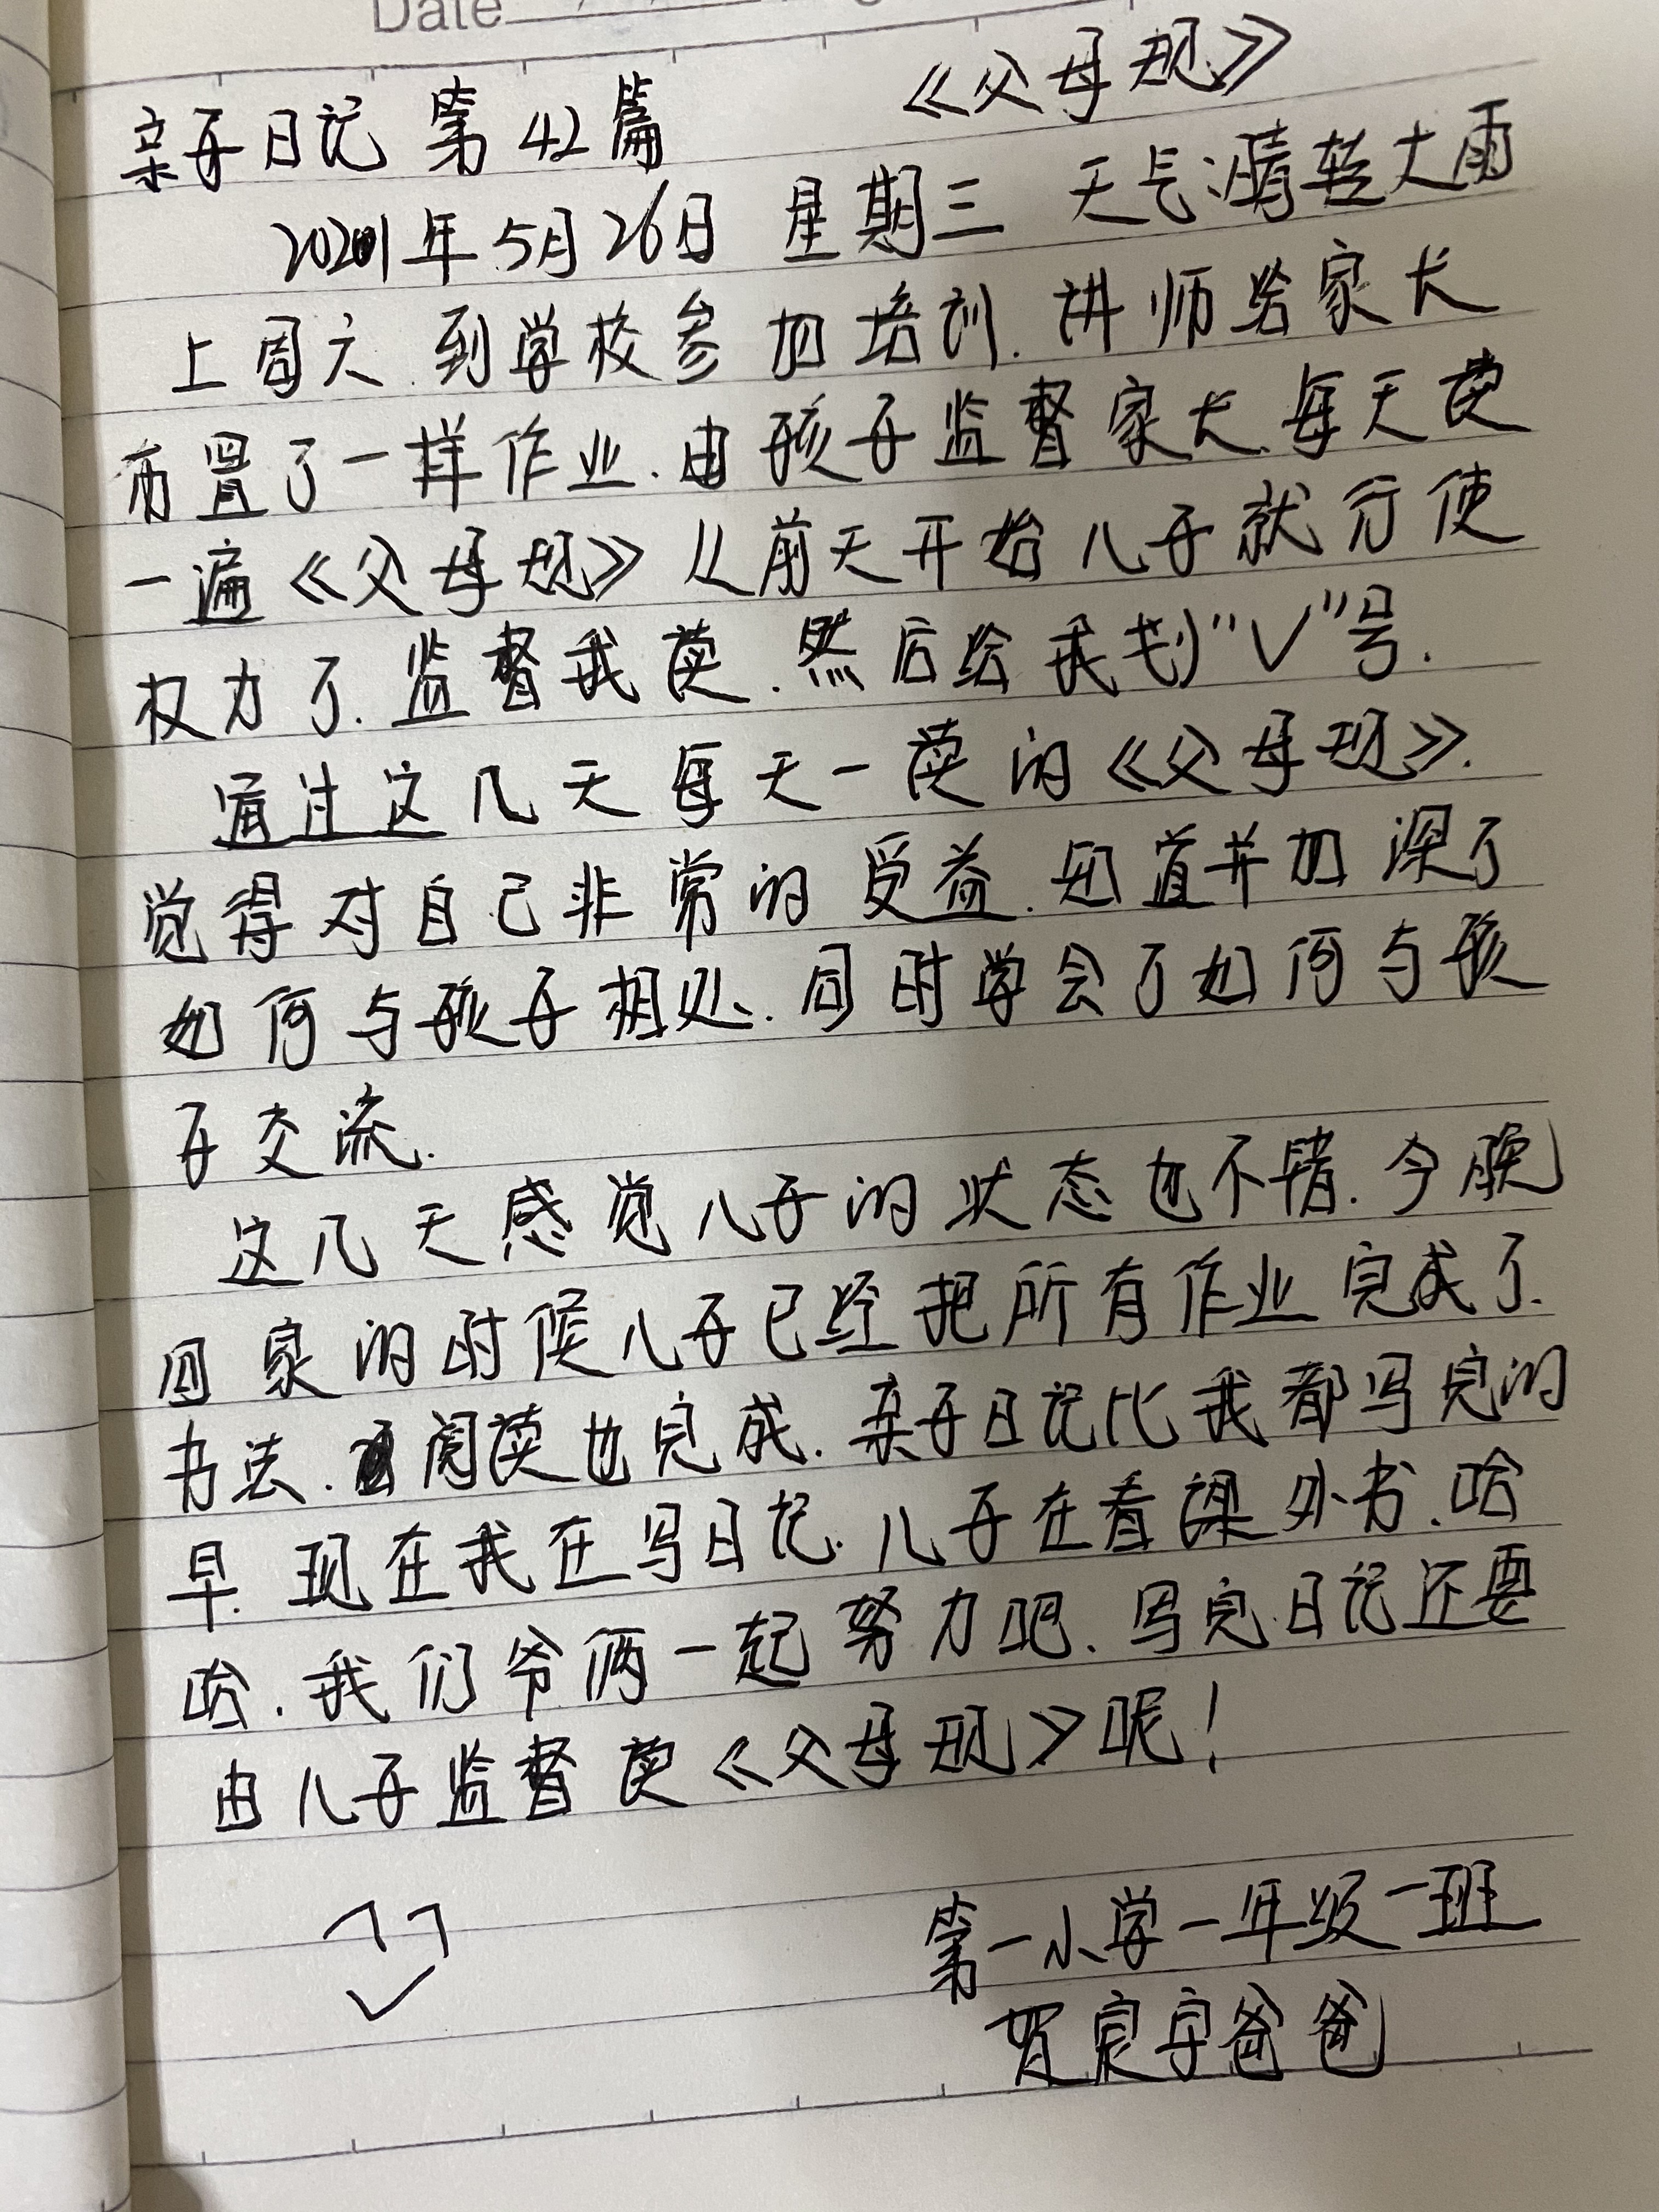 Date
《父母规》
亲子日记 第42篇
2021年5月26日 星期三 天气:晴转大雨
上周六.到学校参加培训.讲师给家长
布置了一样作业.由孩子监督家长.每天读
一遍《父母规》从前天开始儿子就行使
权力了.监督我读.然后给我划"√"号.
通过这几天每天一读的《父母规》.
觉得对自己非常的受益.知道并加深了
如何与孩子相处.同时学会了如何与孩
子交流.
这几天感觉儿子的状态也不错.今晚
回家的时候儿子已经把所有作业完成了.
书法.阅读也完成.亲子日记比我都写完的
早.现在我在写日记.儿子在看课外书.哈
哈.我们爷俩一起努力吧.写完日记还要
由儿子监督读《父母规》呢!
第一小学一年级一班
贺宸宇爸爸